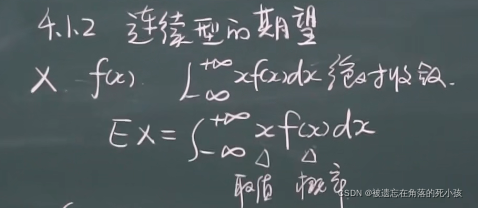 4.1.2 连续型的期望
X f(x) ∫_{-∞}^{+∞} xf(x)dx 绝对收敛.
EX = ∫_{-∞}^{+∞} x f(x) dx
△ △
取值 概率
CSDN @被遗忘在角落的死小孩